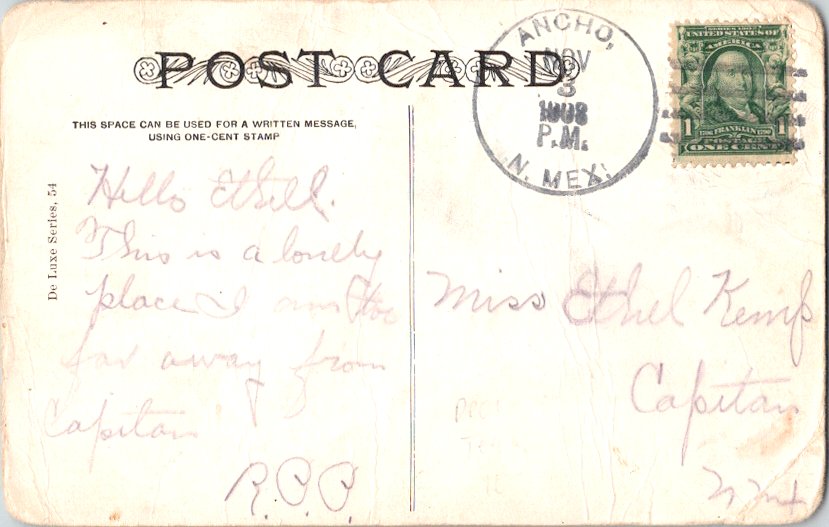 POST CARD
THIS SPACE CAN BE USED FOR A WRITTEN MESSAGE,
USING ONE-CENT STAMP
De Luxe Series, 54
Hello Ethell.
This is a lonely
place I am too
far away from
Capitan
R.P.P.
ANCHO,
NOV
3
1908
P.M.
N. MEX.
SERIES 1902
UNITED STATES OF
AMERICA
1 1706 FRANKLIN 1790 1
POSTAGE
ONE CENT
Miss Ethel Kemp
Capitan
N Mex